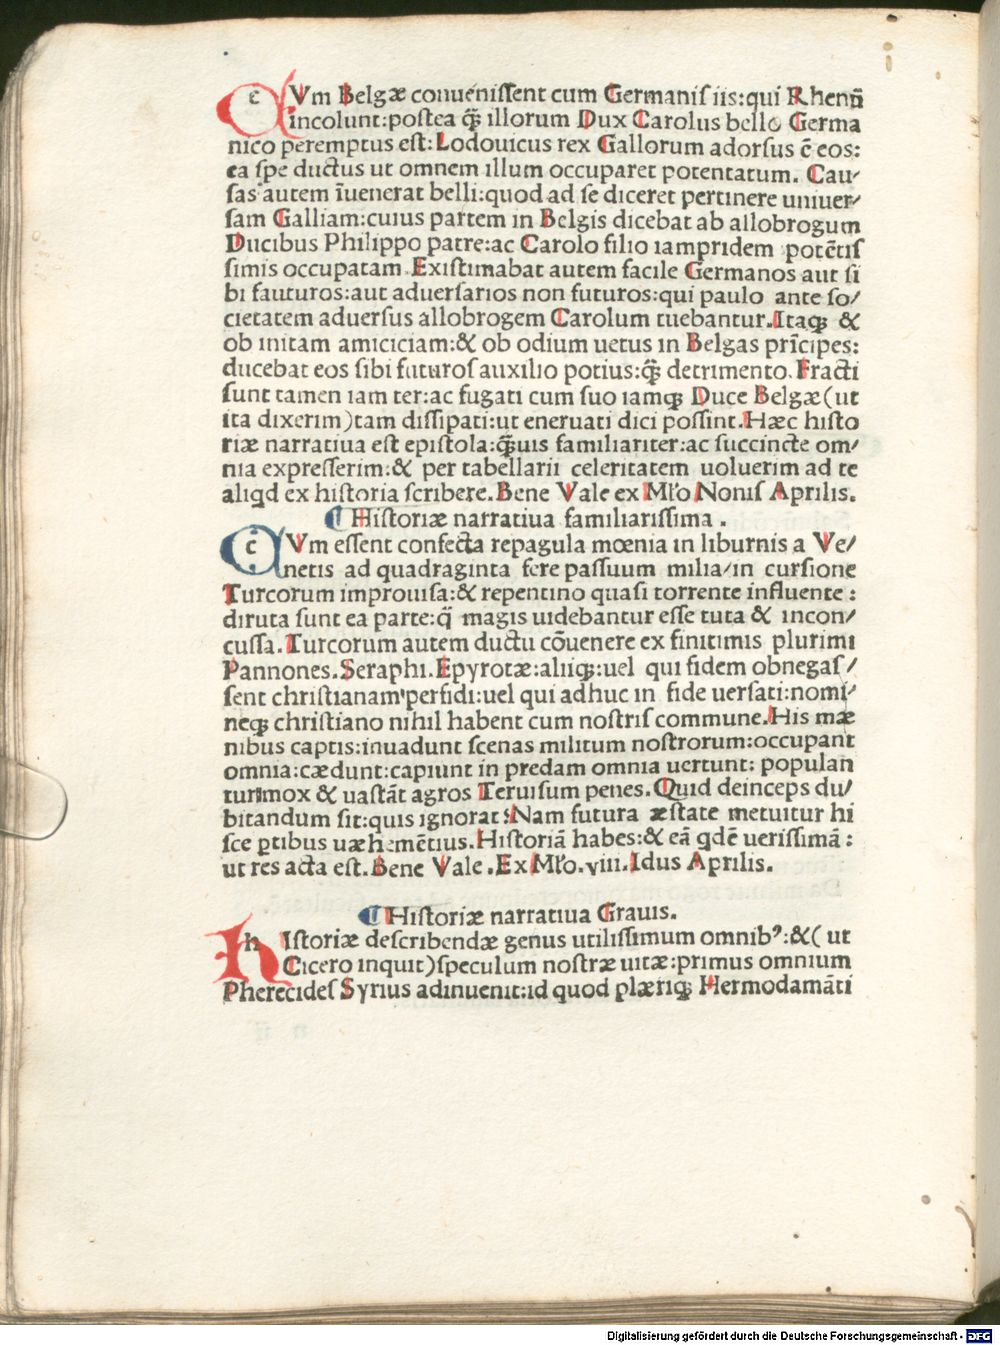 CVm Belgæ conuenissent cum Germanis iis:qui Rhenū
incolunt:postea q̃ illorum Dux Carolus bello Germa
nico peremptus est:Lodouicus rex Gallorum adorsus ē eos:
ea spe ductus ut omnem illum occuparet potentatum. Cau/
sas autem īuenerat belli:quod ad se diceret pertinere uniuer/
sam Galliam:cuius partem in Belgis dicebat ab allobrogum
Ducibus Philippo patre:ac Carolo filio iampridem potētis
simis occupatam.Existimabat autem facile Germanos aut si
bi fauturos:aut aduersarios non futuros:qui paulo ante so/
cietatem aduersus allobrogem Carolum tuebantur.Itaqꝫ &
ob initam amiciciam:& ob odium uetus in Belgas prīcipes:
ducebat eos sibi futuros auxilio potius:q̃ detrimento.Fracti
sunt tamen iam ter:ac fugati cum suo iamqꝫ Duce Belgæ(ut
ita dixerim)tam dissipati:ut eneruati dici possint.Hæc histo
riæ narratiua est epistola:q̃uis familiariter:ac succincte om/
nia expresserim:& per tabellarii celeritatem uoluerim ad te
aliqd ex historia scribere.Bene Vale ex Mło Nonis Aprilis.
¶ Historiæ narratiua familiarissima .
CVm essent confecta repagula mœnia in liburnis a Ve/
netis ad quadraginta fere passuum milia/in cursione
Turcorum improuisa:& repentino quasi torrente influente :
diruta sunt ea parte:q̄ magis uidebantur esse tuta & incon/
cussa.Turcorum autem ductu cōuenere ex finitimis plurimi
Pannones.Seraphi.Epyrotæ:aliiqꝫ:uel qui fidem obnegas/
sent christianam perfidi:uel qui adhuc in fide uersati:nomi/
neqꝫ christiano nihil habent cum nostris commune.His mæ
nibus captis:inuadunt scenas militum nostrorum:occupant
omnia:cædunt:capiunt in predam omnia uertunt: populan
tur mox & uastāt agros Teruisum penes.Quid deinceps du/
bitandum sit:quis ignorat?Nam futura æstate metuitur hi
sce ꝑtibus uæhemētius.Historiā habes:& eā qdē uerissimā :
ut res acta est.Bene Vale .Ex Mło.viii.Idus Aprilis.
¶ Historiæ narratiua Grauis.
hIstoriæ describendæ genus utilissimum omnibꝰ:&( ut
Cicero inquit)speculum nostræ uitæ:primus omnium
Pherecides Syrius adinuenit:id quod plæriqꝫ Hermodamāti
Digitalisierung gefördert durch die Deutsche Forschungsgemeinschaft - DFG